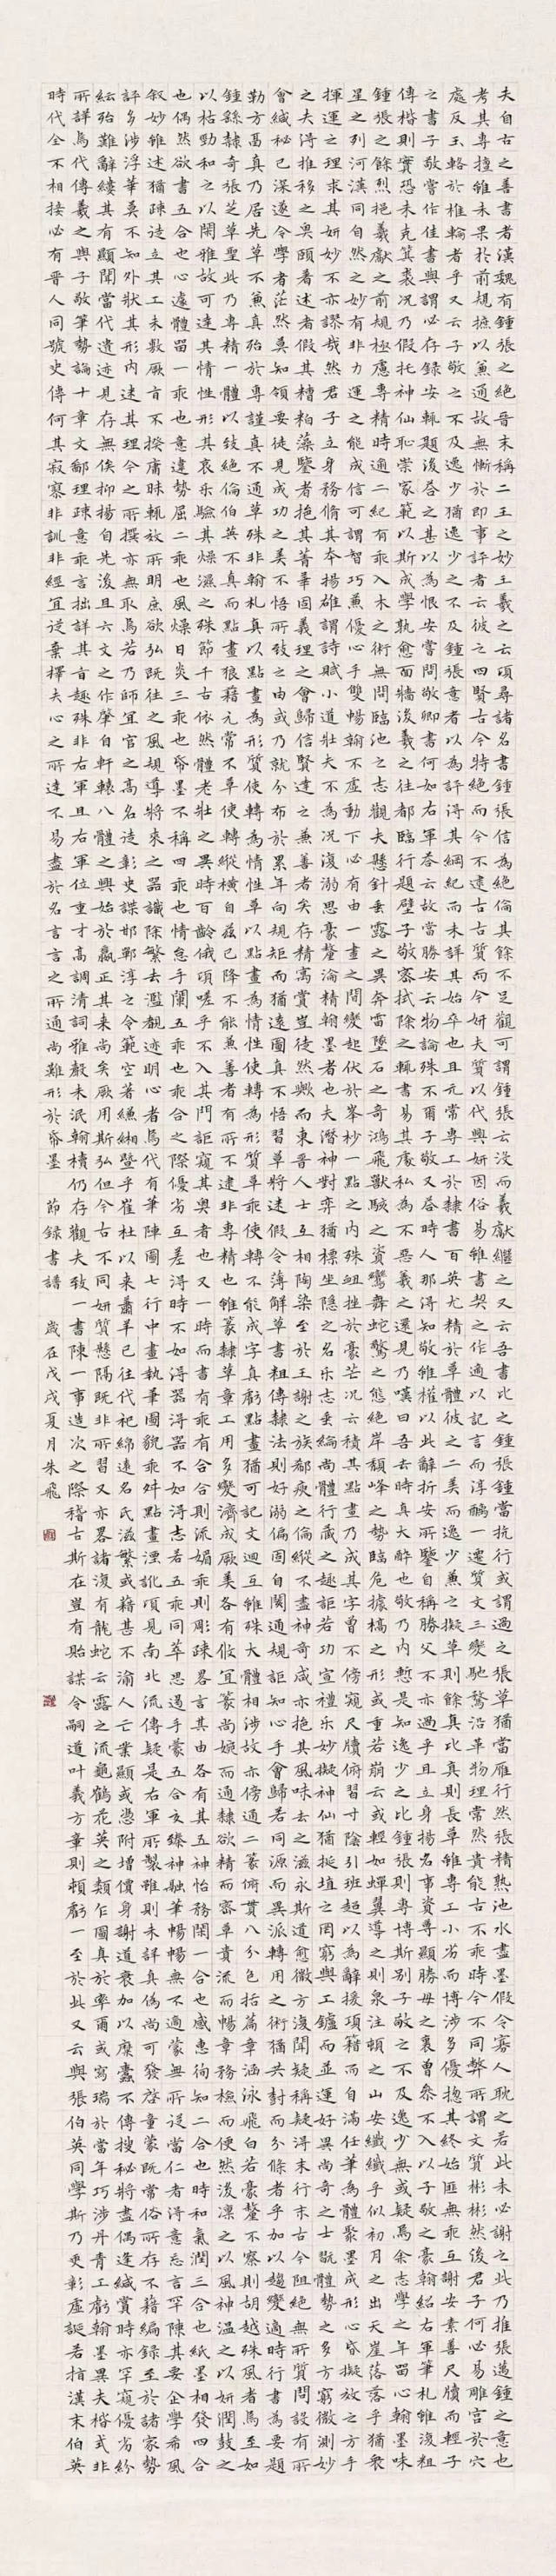 夫自古之善書者漢魏有鍾張之絕晉末稱二王之妙王羲之云頃尋諸名書鍾張信為絕倫其餘不足觀可謂鍾張云沒而羲獻繼之又云吾書比之鍾張鍾當抗行或謂過之張草猶當雁行然張精熟池水盡墨假令寡人耽之若此未必謝之此乃推張邁鍾之意也
考其專擅雖未果於前規摭以兼通故無慚於即事評者云彼之四賢古今特絕而今不逮古古質而今妍夫質以代興妍因俗易雖書契之作適以記言而淳醨一遷質文三變馳騖沿革物理常然貴能古不乖時今不同弊所謂文質彬彬然後君子何必易雕宮於穴
處反玉輅於椎輪者乎又云子敬之不及逸少猶逸少之不及鍾張意者以為評得其綱紀而未詳其始卒也且元常專工於隸書百英尤精於草體彼之二美而逸少兼之擬草則餘真比真則長草雖專工小劣而博涉多優揔其終始匪無乖互謝安素善尺牘而輕子
之書子敬嘗作佳書與謂必存錄安輒題後答之甚以為恨安嘗問敬卿書何如右軍答云故當勝安云物論殊不爾子敬又答時人那得知敬雖權以此辭折安所鑒自稱勝父不亦過乎且立身揚名事資尊顯勝母之裏曾參不入以子敬之豪翰紹右軍筆札雖復粗
傳楷則實恐未克箕裘況乃假托神仙恥崇家範以斯成學孰愈面牆後羲之往都臨行題壁子敬密拭除之輒書易其處私為不惡羲之還見乃嘆曰吾去時真大醉也敬乃內慚是知逸少之比鍾張則專博斯別子敬之不及逸少無或疑焉余志學之年留心翰墨味
鍾張之餘烈挹羲獻之前規極慮專精時逾二紀有乖入木之術無間臨池之志觀夫懸針垂露之異奔雷墜石之奇鴻飛獸駭之資鸞舞蛇驚之態絕岸頹峰之勢臨危據槁之形或重若崩雲或輕如蟬翼導之則泉注頓之山安纖纖乎似初月之出天崖落落乎猶衆
星之列河漢同自然之妙有非力運之能成信可謂智巧兼優心手雙暢翰不虛動下必有由一畫之間變起伏於峯杪一點之內殊衄挫於豪芒況云積其點畫乃成其字曾不傍窺尺牘俯習寸陰引班超以為辭援項籍而自滿任筆為體聚墨成形心昏擬效之方手
揮運之理求其妍妙不亦謬哉然君子立身務脩其本揚雄謂詩賦小道壯夫不為況溺思豪釐淪精翰墨者也夫潛神對弈猶標坐隱之名乐志垂綸尚體行藏之趣詎若功宣禮乐妙擬神仙猶挻埴之罔窮與工鑪而並運好異尚奇之士翫體勢之多方窮微測妙
之夫得推移之奧賾著述者假其糟粕藻鑒者挹其菁華固義理之會歸信賢達之兼善者矣存精寓賞豈徒然歟而東晉人士互相陶染至於王謝之族郗庾之倫縱不盡神奇咸亦挹其風味去之滋永斯道愈微方復聞疑稱疑得末行末古今阻絕無所質問設有所
會緘秘已深遂令學者茫然莫知領要徒見成功之美不悟所致之由或乃就分布於累年向規矩而猶遠圖真不悟習草將迷假令薄解草書粗傳隸法則好溺偏固自閡通規詎知心手會歸若同源而異派轉用之術猶共樹而分條者乎加以趨變適時行書為要題
勒方畐真乃居先草不兼真殆於專謹真不通草殊非翰札真以點畫為形質使轉為情性草以點畫為情性使轉為形質草乖使轉不能成字真虧點畫猶可記文迴互雖殊大體相涉故亦傍通二篆俯貫八分包括篇章涵泳飛白若豪釐不察則胡越殊風者焉至如
鍾繇隸奇張芝草聖此乃專精一體以致絕倫伯英不真而點畫狼籍元常不草使轉縱橫自茲已降不能兼善者有所不逮非專精也雖篆隸草章工用多變濟成厥美各有攸宜篆尚婉而通隸欲精而密草貴流而暢章務檢而便然後凜之以風神溫之以妍潤鼓之
以枯勁和之以閑雅故可達其情性形其哀乐驗其燥濕之殊節千古依然體老壯之異時百齡俄頃嗟乎不入其門詎窺其奧者也又一時而書有乖有合合則流媚乖則彫疎略言其由各有其五神怡務閑一合也感惠徇知二合也時和氣潤三合也紙墨相發四合
也偶然欲書五合也心遽體留一乖也意違勢屈二乖也風燥日炎三乖也帋墨不稱四乖也情怠手闌五乖也乖合之際優劣互差得時不如得器得器不如得志若五乖同萃思遏手蒙五合交臻神融筆暢暢無不適蒙無所從當仁者得意忘言罕陳其要企學希風
叙妙雖述猶疎徒立其工未敷厥旨不揆庸昧輒效所明庶欲弘既往之風規導將來之器識除繁去濫覩迹明心者焉代有筆陣圖七行中畫執筆圖貌乖舛點畫湮訛頃見南北流傳疑是右軍所製雖則未詳真偽尚可發啓童蒙既常俗所存不藉編錄至於諸家勢
評多涉浮華莫不外狀其形內迷其理今之所撰亦無取焉若乃師宜官之高名徒彰史諜邯鄲淳之令範空著縑緗暨乎崔杜以來蕭羊已往代祀綿遠名氏滋繁或藉甚不渝人亡業顯或憑附增價身謝道衰加以糜蠹不傳搜秘將盡偶逢緘賞時亦罕窺優劣紛
紜殆難辭縷其有顯聞當代遺迹見存無俟抑揚自先後且六文之作肇自軒轅八體之興始於嬴正其來尚矣厥用斯弘但今古不同妍質懸隔既非所習又亦略諸復有龍蛇云露之流龜鶴花英之類乍圖真於率爾或寫瑞於當年巧涉丹青工虧翰墨異夫楷式非
所詳焉代傳羲之與子敬筆勢論十章文鄙理疎意乖言拙詳其旨趣殊非右軍且右軍位重才高調清詞雅聲未泯翰牘仍存觀夫致一書陳一事造次之際稽古斯在豈有貽謀令嗣道叶義方章則頓虧一至於此又云與張伯英同學斯乃更彰虛誕若指漢末伯英
時代全不相接必有晉人同號史傳何其寂寥非訓非經宜從棄擇夫心之所達不易盡於名言言之所通尚難形於帋墨 節錄書譜 歲在戊戌夏月朱飛